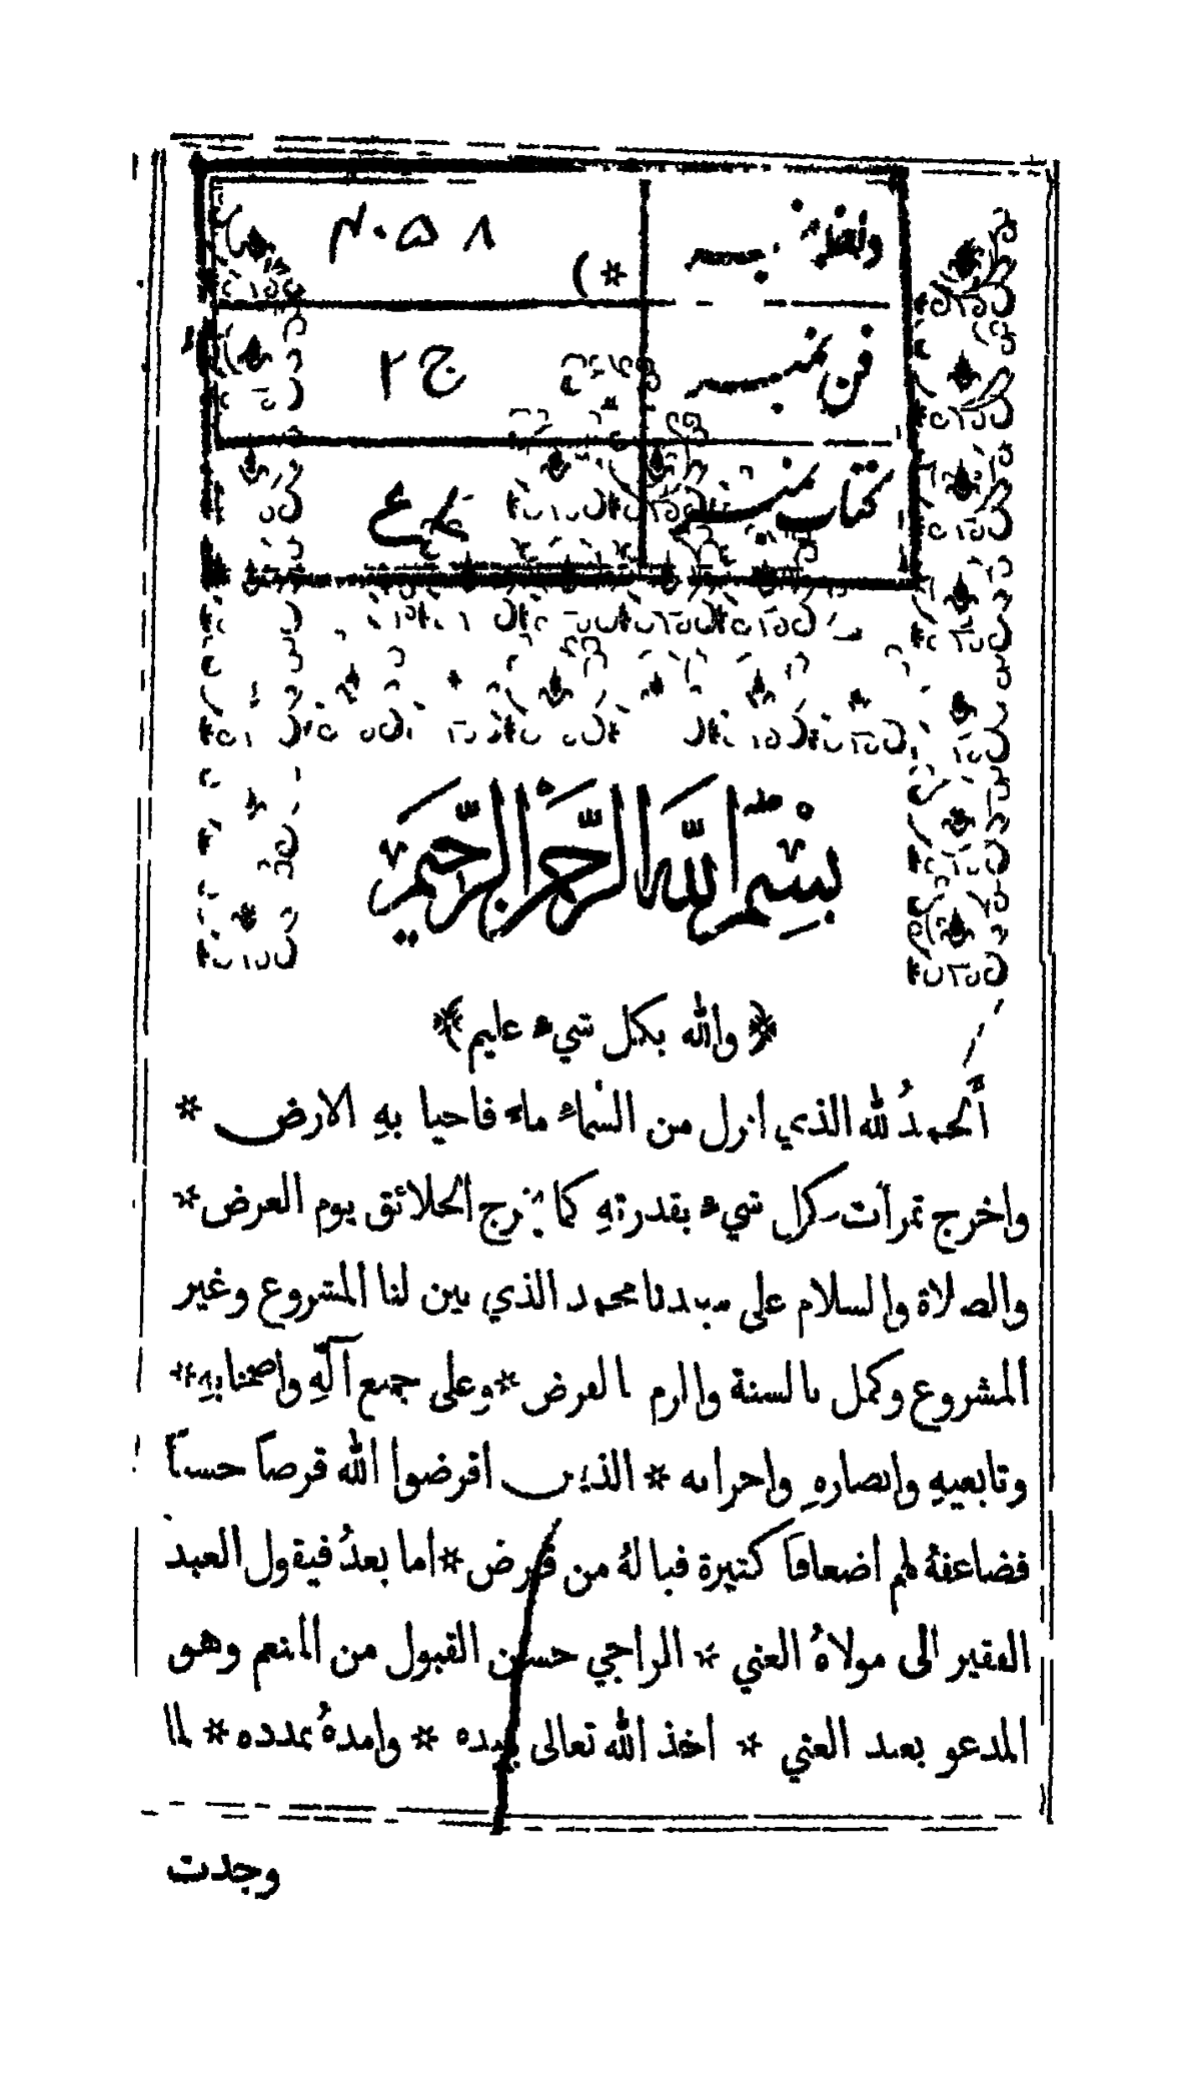 ٨ ۵٠۴
فن نمبر ج ٢
كتاب نمبر
بسم الله الرحمن الرحيم
﴿ والله بكل شيء عليم ﴾
ألحمدُ لله الذي انزل من السماء ماء فاحيا بهِ الارض *
واخرج ثمرات كل شيء بقدرتهِ كما يخرج الخلائق يوم العرض *
والصلاة والسلام على سيدنا محمد الذي بين لنا المشروع وغير
المشروع وكمل بالسنة والزم بالفرض * وعلى جميع آلهِ واصحابهِ *
وتابعيهِ وانصارهِ واحزابه * الذين اقرضوا الله قرضاً حسناً
فضاعفهُ لهم اضعافاً كثيرة فيا لهُ من قرض * اما بعدُ فيقول العبد
الفقير الى مولاهُ الغني * الراجي حسن القبول من المنعم وهو
المدعو بعبد الغني * اخذ الله تعالى بيده * وامدهُ بمدده * لما
وجدت